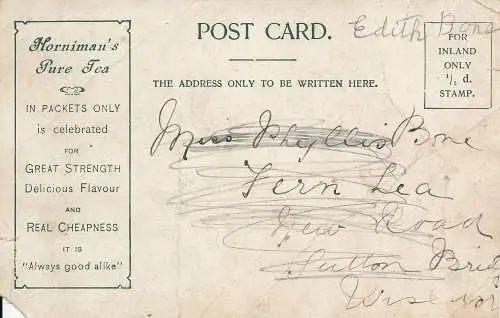 Horniman's
Pure Tea
IN PACKETS ONLY
is celebrated
FOR
GREAT STRENGTH
Delicious Flavour
AND
REAL CHEAPNESS
IT IS
"Always good alike"
POST CARD.
THE ADDRESS ONLY TO BE WRITTEN HERE.
Edith Bone
FOR
INLAND
ONLY
½ d.
STAMP.
Miss Phyllis Bone
Fern Lea
New Road
Sutton Bridg